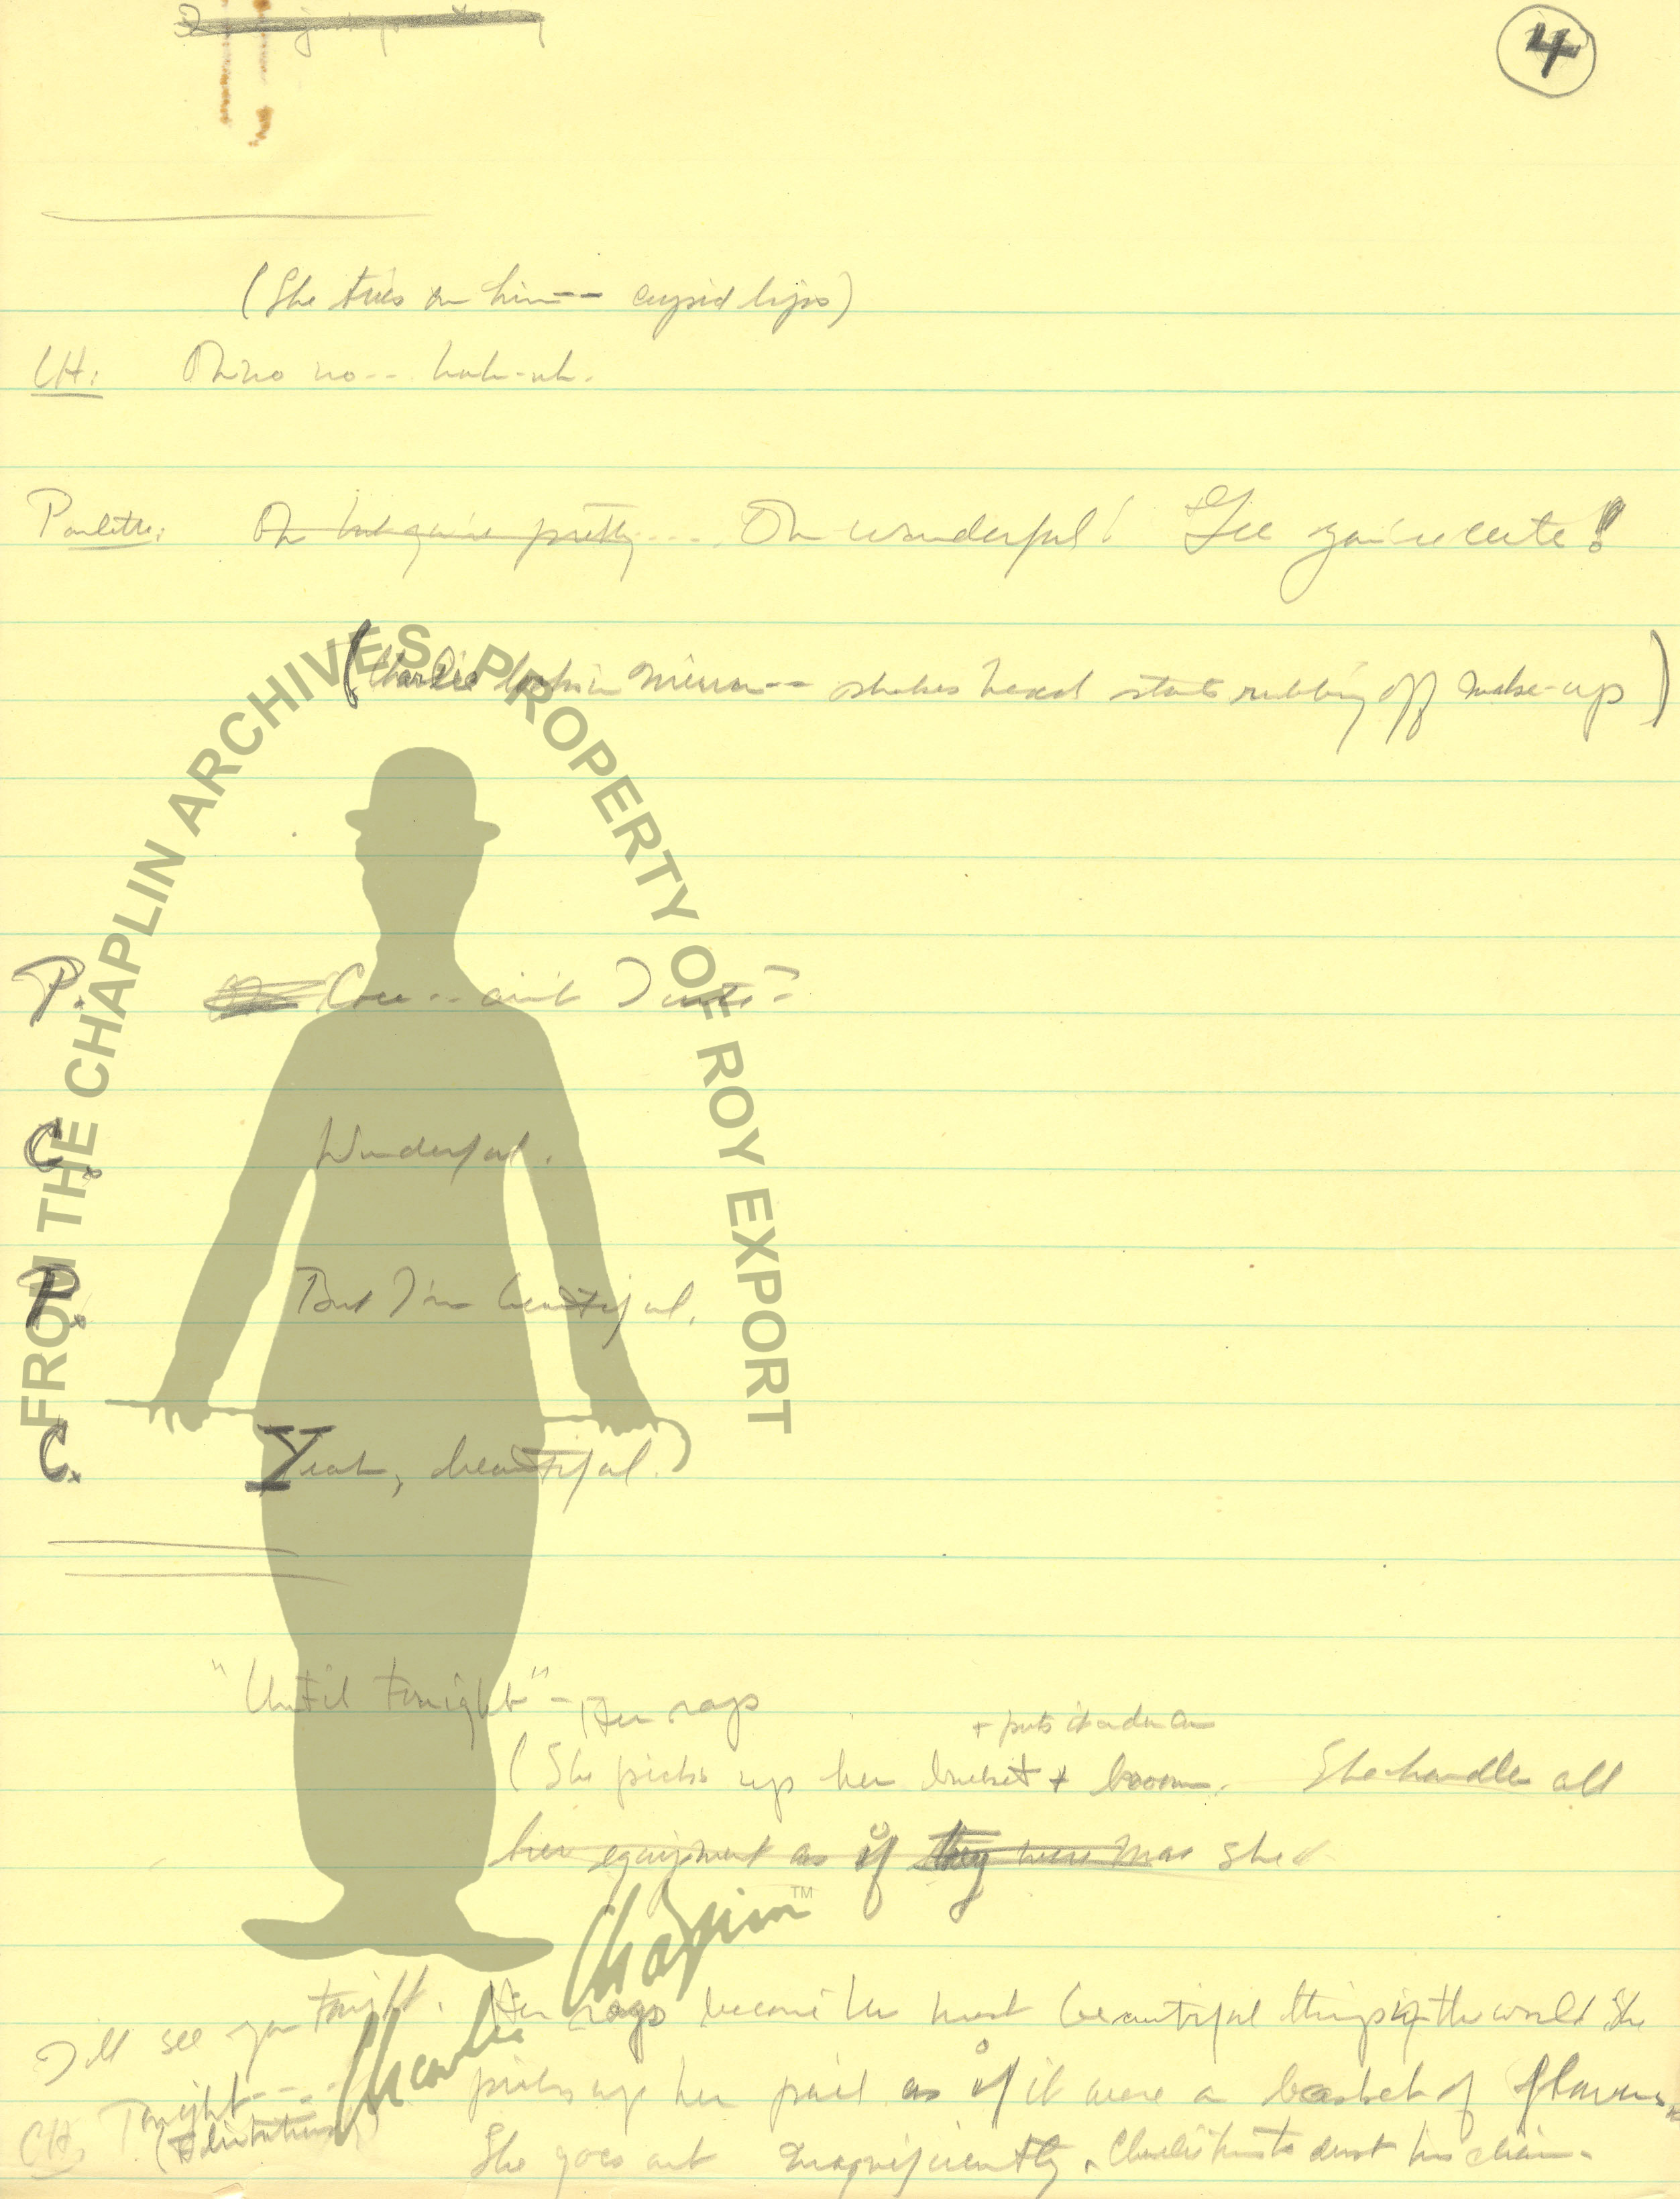 4
(She tries on him -- cupid lips)
CH: Oh no no -- huh-uh.
Paulette: Oh but you're pretty .... Oh wonderful! Gee you're cute!
(Charlie looks in mirror -- shakes head starts rubbing off make-up)
P. Gee -- ain't I cute?
C. Wonderful.
P. But I'm beautiful.
C. Yeah, beautiful.
"Until tonight" - Her rags
+ puts it under arm
(She picks up her bucket + broom. She handles all
her equipment as if they were she
I'll see you tonight. Her rags become her most beautiful things in the world She
Tonight ---- picks up her pail as if it were a basket of flowers.
CH. She goes out magnificently. Charlie turns to dust his chair.
FROM THE CHAPLIN ARCHIVES, PROPERTY OF ROY EXPORT
Charlie Chaplin™